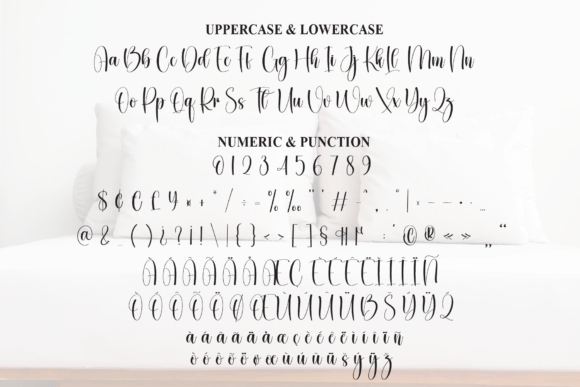 UPPERCASE & LOWERCASE
Aa Bb Cc Dd Ee Ff Gg Hh Ii Jj Kk Ll Mm Nn
Oo Pp Qq Rr Ss Tt Uu Vv Ww Xx Yy Zz
NUMERIC & PUNCTION
0 1 2 3 4 5 6 7 8 9
$ ¢ £ ¥ + ° / ÷ = % ‰ " ' #
@ & _ ( ) ¿ ? ¡ ! \ | { } < > [ ] § ¶ : © ® « » „ “
À Á Â Ã Ä Å Æ Ç È É Ê Ë Ì Í Î Ï Ñ
Ò Ó Ô Õ Ö Ø Œ Ù Ú Û Ü ß Š Ý Ÿ Ž
à á â ã ä å æ ç è é ê ë ì í î ï ñ
ò ó ô õ ö ø œ ù ú û ü š ý ÿ ž